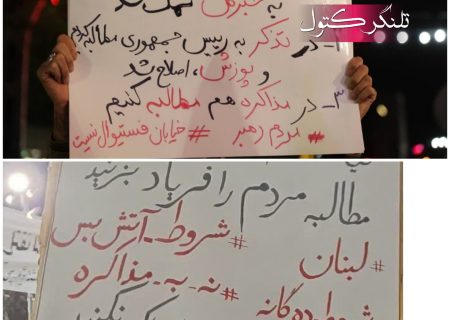 تلنگر کتول
به خبرگان کمک شد
۲- در تذکر به رییس جمهوری مطالبه کردیم
و پوزش، اصلاح شد
۳- در مذاکره هم مطالبه کنیم
#مردم رهبر #خیابان فستیوال نیست
مطالبه مردم را فریاد بزنید
#شروط_آتش_بس
#لبنان
#نه_به_مذاکره